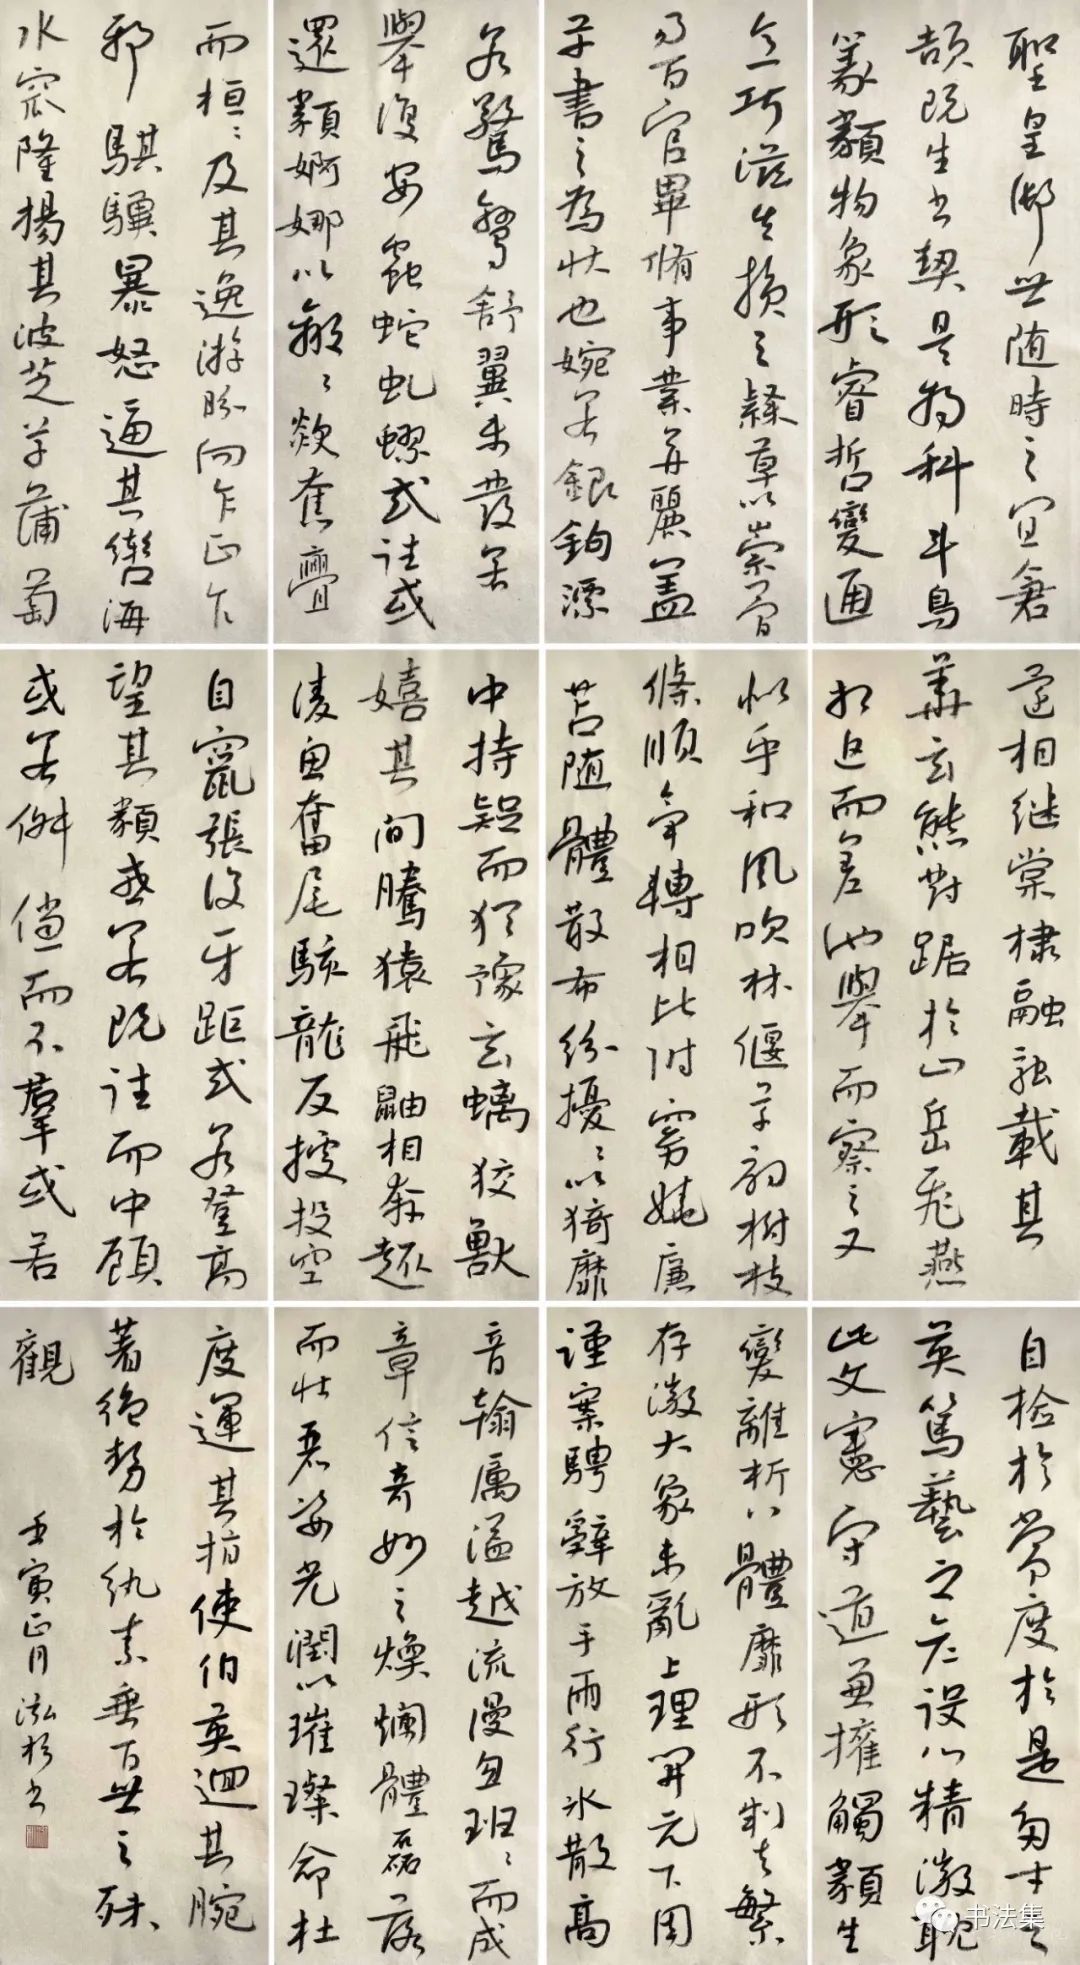 聖皇御世随時之宜倉
頡既生书契是为科斗鳥
篆類物象形睿哲變通
意巧滋生損之隸草以崇简
易百官畢脩事業并麗盖
草書之為状也婉若銀鉤漂
若驚鸞舒翼未發若
舉復安蟲蛇虬蟉或往或
還類婀娜以羸羸欻奮亹
而桓桓及其逸游盼向乍正乍
邪騏驥暴怒逼其轡海
水窊隆揚其波芝草蒲萄
還相继棠棣融融載其
華玄熊對踞於山岳飛燕
相追而差池舉而察之又
似乎和風吹林偃草扇樹枝
條順氣轉相比附窈嬈廉
苫随體散布纷擾擾以猗靡
中持疑而猶豫玄螭狡獸
嬉其间騰猿飛鼬相奔趣
凌魚奮尾駭龍反據投空
自竄張设牙距或若登高
望其類或若既往而中顧
或若俶儻而不羣或若
自检於常度於是多才之
英篤藝之彦设心精微耽
此文憲守道兼權觸類生
變離析八體靡形不判去繁
存微大象未亂上理開元下周
谨案騁辭放手雨行冰散高
音翰厲溢越流漫忽班班而成
章信奇妙之焕爛體磊落
而壮麗姿光潤以璀璨命杜
度運其指使伯英迴其腕
著绝勢於纨素垂百世之殊
觀
壬寅正月
书
书法集